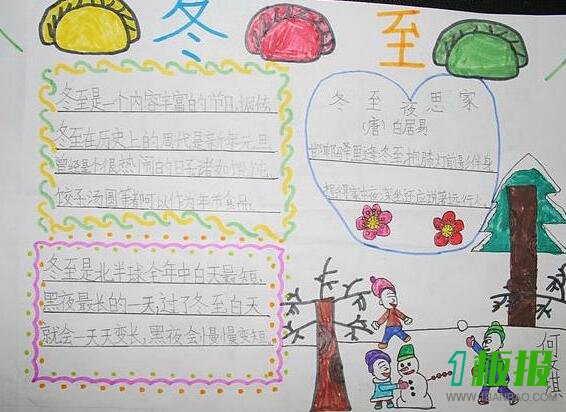 冬至
冬至是一个内容丰富的节日,据传
冬至在历史上的周代是新年元旦,
曾经是个很热闹的日子诸如馄饨
饺子汤圆等都可以作为年节食品。
冬至夜思家
(唐)白居易
邯郸驿里逢冬至抱膝灯前影伴身
想得家中夜深坐还应说著远行人。
冬至是北半球全年中白天最短,
黑夜最长的一天,过了冬至白天
就会一天天变长,黑夜会慢慢变短。
何
1板报
WWW.1BANBAO.COM